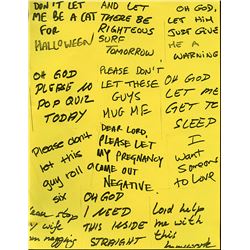 DON'T LET
ME BE A CAT
FOR
HALLOWEEN
AND LET
THERE BE
RIGHTEOUS
SURF
TOMORROW
OH GOD
LET HIM
JUST GIVE
ME A
WARNING
OH GOD
PLEASE NO
POP QUIZ
TODAY
PLEASE DON'T
LET THESE
GUYS
MUG ME
OH GOD
LET ME
GET TO
SLEED
Please don't
let this
guy roll a
six
DEAR LORD,
PLEASE LET
MY PREGNANCY
COME OUT
NEGATIVE.
I
Want
Someone
to Love
please stop
my wife
from nagging
OH GOD
I NEED
THIS INSIDE
STRAIGHT
Lord help
me with
this